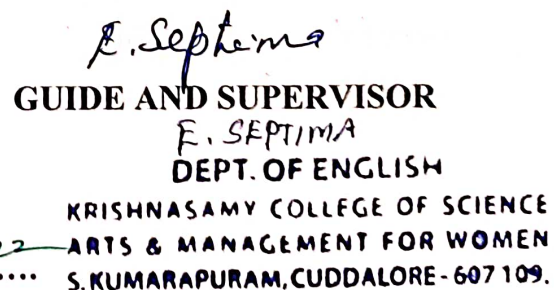 E. Septima
GUIDE AND SUPERVISOR
E. SEPTIMA
DEPT. OF ENGLISH
KRISHNASAMY COLLEGE OF SCIENCE
ARTS & MANAGEMENT FOR WOMEN
S.KUMARAPURAM, CUDDALORE - 607 109.